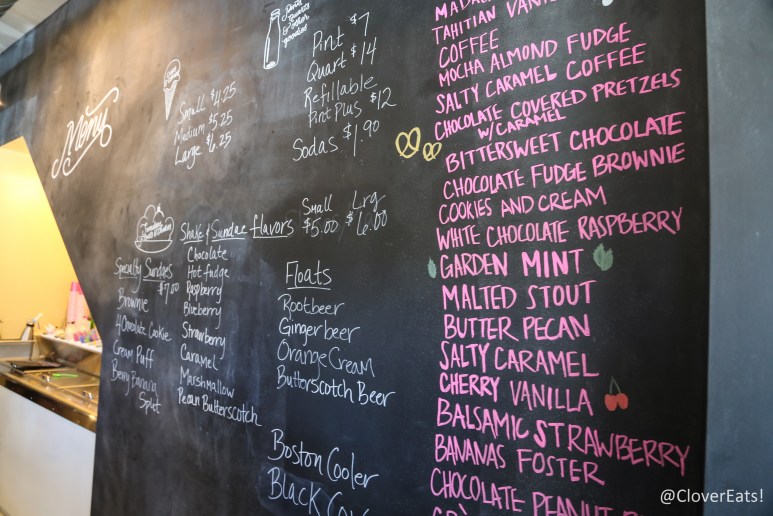 Menu
Small $4.25
Medium $5.25
Large $6.25
Pint $7
Quart $14
Refillable
Pint Plus $12
Sodas $1.90
Shake & Sundae Flavors
Small Lrg
$5.00 $6.00
Chocolate
Hot fudge
Raspberry
Blueberry
Strawberry
Caramel
Marshmallow
Pecan Butterscotch
Specialty Sundaes
$7.00
Brownie
Chocolate Cookie
Cream Puff
Berry Banana
Split
Floats
Rootbeer
Gingerbeer
Orange Cream
Butterscotch Beer
Boston Cooler
Black
TAHITIAN
COFFEE
MOCHA ALMOND FUDGE
SALTY CARAMEL COFFEE
CHOCOLATE COVERED PRETZELS
W/CARAMEL
BITTERSWEET CHOCOLATE
CHOCOLATE FUDGE BROWNIE
COOKIES AND CREAM
WHITE CHOCOLATE RASPBERRY
GARDEN MINT
MALTED STOUT
BUTTER PECAN
SALTY CARAMEL
CHERRY VANILLA
BALSAMIC STRAWBERRY
BANANAS FOSTER
CHOCOLATE PEANUT
@CloverEats!